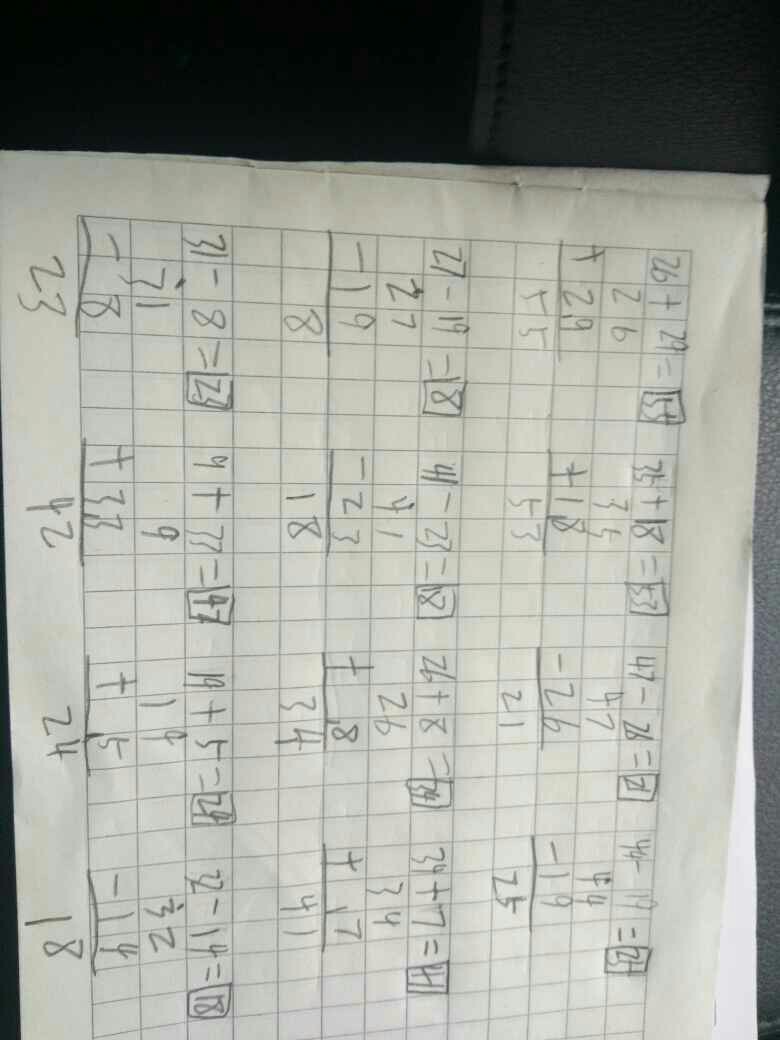 26+29=55 35+18=53 47-26=21 44-19=25
26 35 47 44
+29 +18 -26 -19
55 53 21 25
27-19=18 41-23=18 26+8=34 34+7=41
27 41 26 34
-19 -23 +8 +17
8 18 34 41
31-8=23 9+33=42 19+5=24 32-14=18
31 9 19 32
-8 +33 +5 -14
23 42 24 18